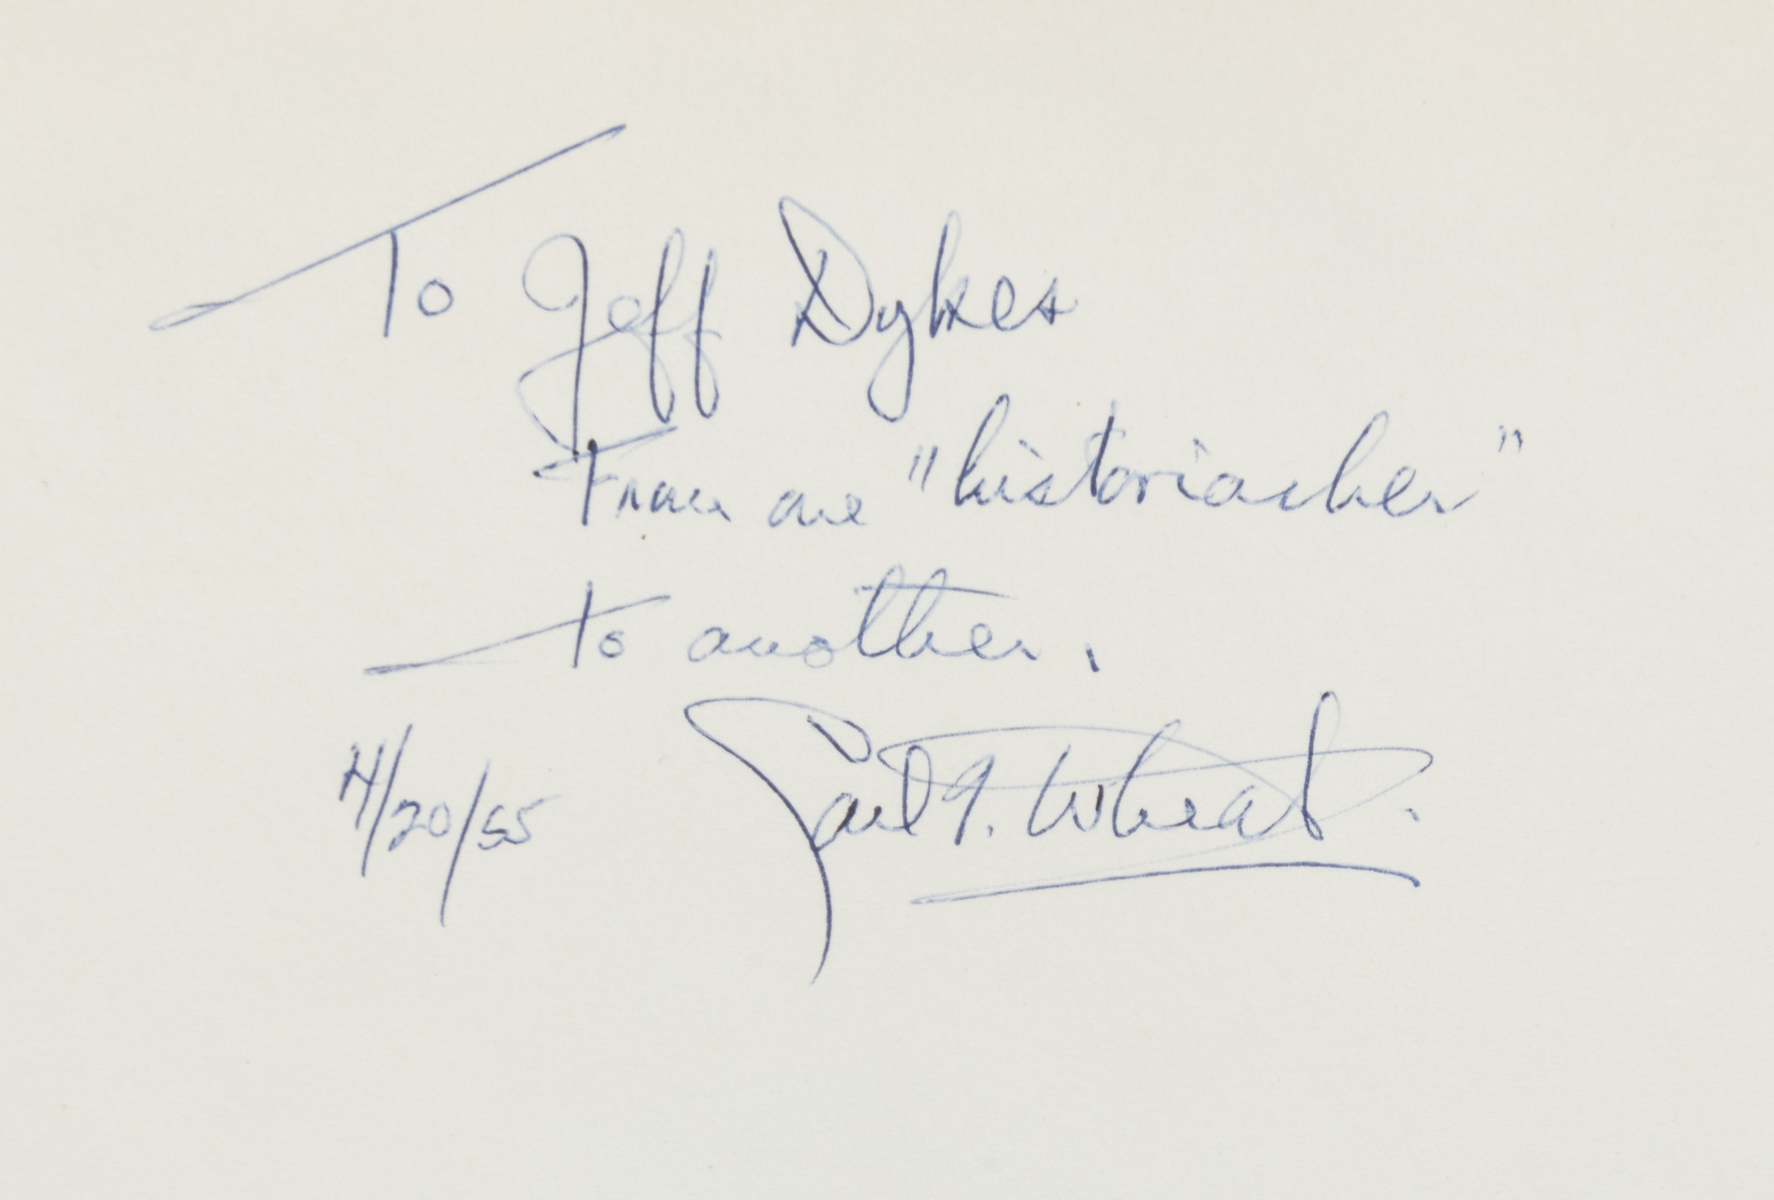 To Jeff Dykes
From one "historiacher"
to another.
4/20/55 Carl I. Wheat.